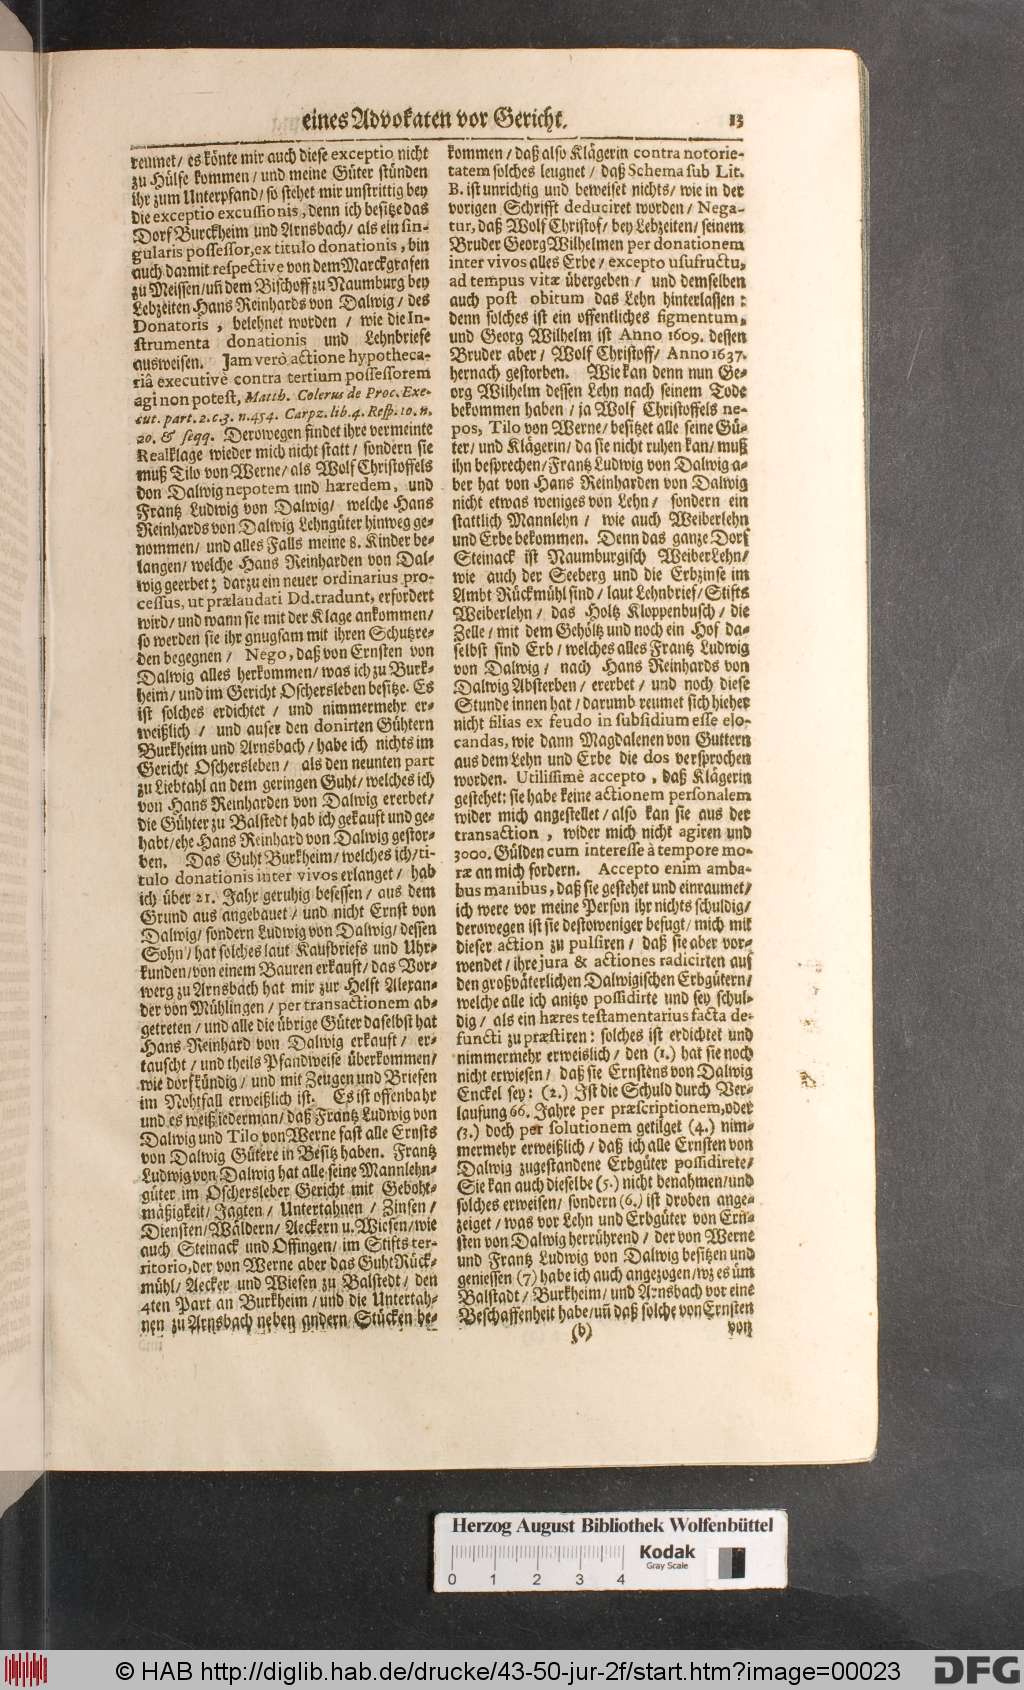 eines Advokaten vor Gericht. 13
reumet / es könte mir auch diese exceptio nicht
zu Hülfe kommen / und meine Güter stünden
ihr zum Unterpfand / so stehet mir unstrittig bey
die exceptio excussionis, denn ich besitze das
Dorf Burckheim und Arnsbach / als ein sin-
gularis possessor, ex titulo donationis, bin
auch darmit respective von dem Marckgrafen
zu Meissen / uñ dem Bischoff zu Naumburg bey
Lebzeiten Hans Reinhards von Dalwig / des
Donatoris, belehnet worden / wie die In-
strumenta donationis und Lehnbriefe
ausweisen. Jam verò actione hypotheca-
riâ executivè contra tertium possessorem
agi non potest, Matth. Colerus de Proc. Exe-
cut. part. 2. c. 3. n. 454. Carpz. lib. 4. Resp. 10. n.
20. & seqq. Derowegen findet ihre vermeinte
Realklage wieder mich nicht statt / sondern sie
muß Tilo von Werne / als Wolf Christoffels
von Dalwig nepotem und hæredem, und
Frantz Ludwig von Dalwig / welche Hans
Reinhards von Dalwig Lehngüter hinweg ge-
nommen / und alles Falls meine 8. Kinder be-
langen / welche Hans Reinharden von Dal-
wig geerbet; darzu ein neuer ordinarius pro-
cessus, ut prælaudati Dd. tradunt, erfordert
wird / und wann sie mit der Klage ankommen /
so werden sie ihr gnugsam mit ihren Schutzre-
den begegnen / Nego, daß von Ernsten von
Dalwig alles herkommen / was ich zu Burk-
heim / und im Gericht Oschersleben besitze. Es
ist solches erdichtet / und nimmermehr er-
weißlich / und auser den donirten Gühtern
Burkheim und Arnsbach / habe ich nichts im
Gericht Oschersleben / als den neunten part
zu Liebtahl an dem geringen Guht / welches ich
von Hans Reinharden von Dalwig ererbet /
die Gühter zu Balstedt hab ich gekauft und ge-
habt / ehe Hans Reinhard von Dalwig gestor-
ben. Das Guht Burkheim / welches ich / ti-
tulo donationis inter vivos erlanget / hab
ich über 21. Jahr geruhig besessen / aus dem
Grund aus angebauet / und nicht Ernst von
Dalwig / sondern Ludwig von Dalwig / dessen
Sohn / hat solches laut Kaufbriefs und Uhr-
kunden / von einem Bauren erkauft / das Vor-
werg zu Arnsbach hat mir zur Helft Alexan-
der von Mühlingen / per transactionem ab-
getreten / und alle die übrige Güter daselbst hat
Hans Reinhard von Dalwig erkauft / er-
tauscht / und theils Pfandweise überkommen /
wie dorfkündig / und mit Zeugen und Briefen
im Nohtfall erweißlich ist. Es ist offenbahr
und es weiß jederman / daß Frantz Ludwig von
Dalwig und Tilo von Werne fast alle Ernsts
von Dalwig Gütere in Besitz haben. Frantz
Ludwig von Dalwig hat alle seine Mannlehn-
güter im Oschersleber Gericht mit Geboht-
mäßigkeit / Jagten / Untertahnen / Zinsen /
Diensten / Wäldern / Aeckern u. Wiesen / wie
auch Steinack und Offingen / im Stifts ter-
ritorio, der von Werne aber das Guht Rück-
mühl / Aecker und Wiesen zu Balstedt / den
4ten Part an Burkheim / und die Untertah-
nen zu Arnsbach neben andern Stücken be-
kommen / daß also Klägerin contra notorie-
tatem solches leugnet / daß Schema sub Lit.
B. ist unrichtig und beweiset nichts / wie in der
vorigen Schrifft deduciret worden / Nega-
tur, daß Wolf Christof / bey Lebzeiten / seinem
Bruder Georg Wilhelmen per donationem
inter vivos alles Erbe / excepto usufructu,
ad tempus vitæ übergeben / und demselben
auch post obitum das Lehn hinterlassen:
denn solches ist ein offentliches figmentum,
und Georg Wilhelm ist Anno 1609. dessen
Bruder aber / Wolf Christoff / Anno 1637.
hernach gestorben. Wie kan denn nun Ge-
org Wilhelm dessen Lehn nach seinem Tode
bekommen haben / ja Wolf Christoffels ne-
pos, Tilo von Werne / besitzet alle seine Gü-
ter / und Klägerin / da sie nicht ruhen kan / muß
ihn besprechen / Frantz Ludwig von Dalwig a-
ber hat von Hans Reinharden von Dalwig
nicht etwas weniges von Lehn / sondern ein
stattlich Mannlehn / wie auch Weiberlehn
und Erbe bekommen. Denn das gantze Dorf
Steinack ist Naumburgisch WeiberLehn /
wie auch der Seeberg und die Erbzinse im
Ambt Rückmühl sind / laut Lehnbrief / Stifts
Weiberlehn / das Holtz Kloppenbusch / die
Zelle / mit dem Gehöltz und noch ein Hof da-
selbst sind Erb / welches alles Frantz Ludwig
von Dalwig / nach Hans Reinhards von
Dalwig Absterben / ererbet / und noch diese
Stunde innen hat / darumb reumet sich hieher
nicht filias ex feudo in subsidium esse elo-
candas, wie dann Magdalenen von Guttern
aus dem Lehn und Erbe die dos versprochen
worden. Utilissimè accepto, daß Klägerin
gestehet: sie habe keine actionem personalem
wider mich angestellet / also kan sie aus der
transaction, wider mich nicht agiren und
3000. Gülden cum interesse à tempore mo-
ræ an mich fordern. Accepto enim amba-
bus manibus, daß sie gestehet und einraumet /
ich were vor meine Person ihr nichts schuldig /
derowegen ist sie destoweniger befugt / mich mit
dieser action zu pulsiren / daß sie aber vor-
wendet / ihre jura & actiones radicirten auf
den großväterlichen Dalwigischen Erbgütern /
welche alle ich anitzo possidirte und sey schul-
dig / als ein hæres testamentarius facta de-
functi zu præstiren: solches ist erdichtet und
nimmermehr erweislich / den (1.) hat sie noch
nicht erwiesen / daß sie Ernstens von Dalwig
Enckel sey: (2.) Ist die Schuld durch Ver-
laufung 66. Jahre per præscriptionem, oder
(3.) doch per solutionem getilget (4.) nim-
mermehr erweißlich / daß ich alle Ernsten von
Dalwig zugestandene Erbgüter possidirete /
Sie kan auch dieselbe (5.) nicht benahmen / und
solches erweisen / sondern (6.) ist droben ange-
zeiget / was vor Lehn und Erbgüter von Ern-
sten von Dalwig herrührend / der von Werne
und Frantz Ludwig von Dalwig besitzen und
geniessen (7) habe ich auch angezogen / wz es üm
Balstadt / Burkheim / und Arnsbach vor eine
Beschaffenheit habe / uñ daß solche von Ernsten
(b) von
Herzog August Bibliothek Wolfenbüttel
Kodak
Gray Scale
0 1 2 3 4
© HAB http://diglib.hab.de/drucke/43-50-jur-2f/start.htm?image=00023
DFG